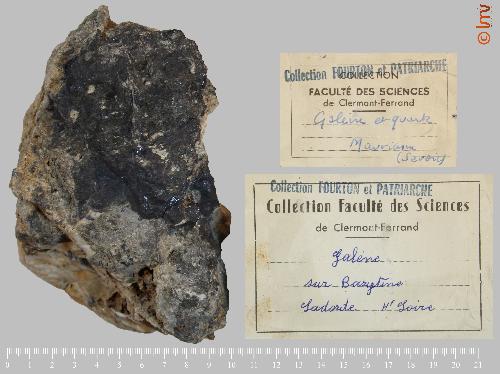 © lmv
Collection FOURTON et PATRIARCHE
COLLECTION
FACULTÉ DES SCIENCES
de Clermont-Ferrand
Galène et quartz
(Savoie)
Collection FOURTON et PATRIARCHE
Collection Faculté des Sciences
de Clermont-Ferrand
Galène
sur Barytine
Hte Loire
0 1 2 3 4 5 6 7 8 9 10 11 12 13 14 15 16 17 18 19 20 21